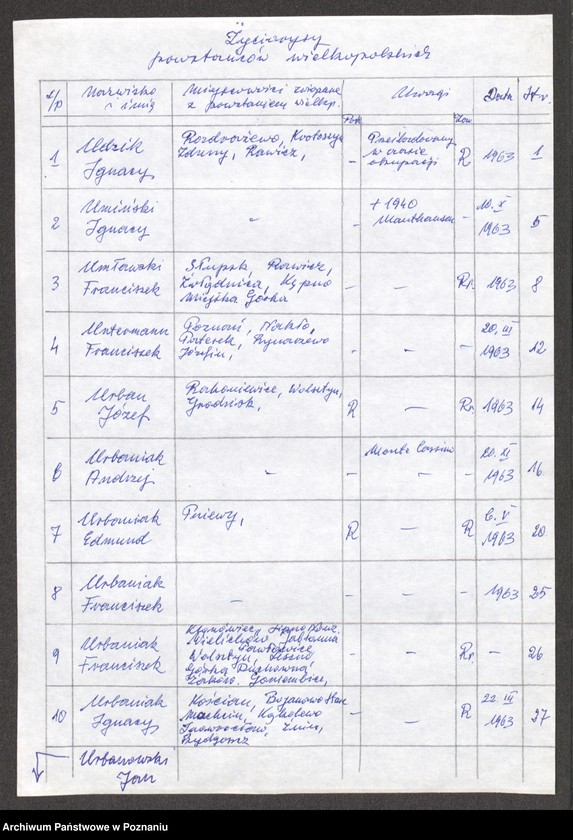 Życiorysy
powstańców wielkopolskich
L/p Nazwisko i imię Miejscowości związane z powstaniem wielkp. Uwagi Data Str.
1 Udzik Ignacy Rozdrażewo, Krotoszyn Zduny, Rawicz, - Przesiedlowany w czasie okupacji R 1963 1
2 Umiński Ignacy - - + 1940 Mauthausen - 10.X 1963 5
3 Umławski Franciszek Słupsk, Rawicz, Kobylnica, Kępno Miejska Górka - - Rr. 1963 8
4 Untermann Franciszek Poznań, Nakło, Paterek, Rynarzewo Józefin, - - - 20.III 1963 12
5 Urban Józef Rakoniewice, Wolsztyn, Grodzisk, R - Rr. 1963 14
6 Urbaniak Andrzej - - Monte Cassino - 20.XI 1963 16
7 Urbaniak Edmund R - R 6.V 1963 20
8 Urbaniak Franciszek - - - - 1963 25
9 Urbaniak Franciszek Wielichowo Jabłonna Pawłowice Wolsztyn, Leszno Górka Duchowna - - Rr. - 26
10 Urbaniak Ignacy Kościan, Bojanowo Star. Kąkolewo Inowrocław, Żnin, Bydgoszcz - - R 22 III 1963 27
Urbanowski Jan
Archiwum Państwowe w Poznaniu